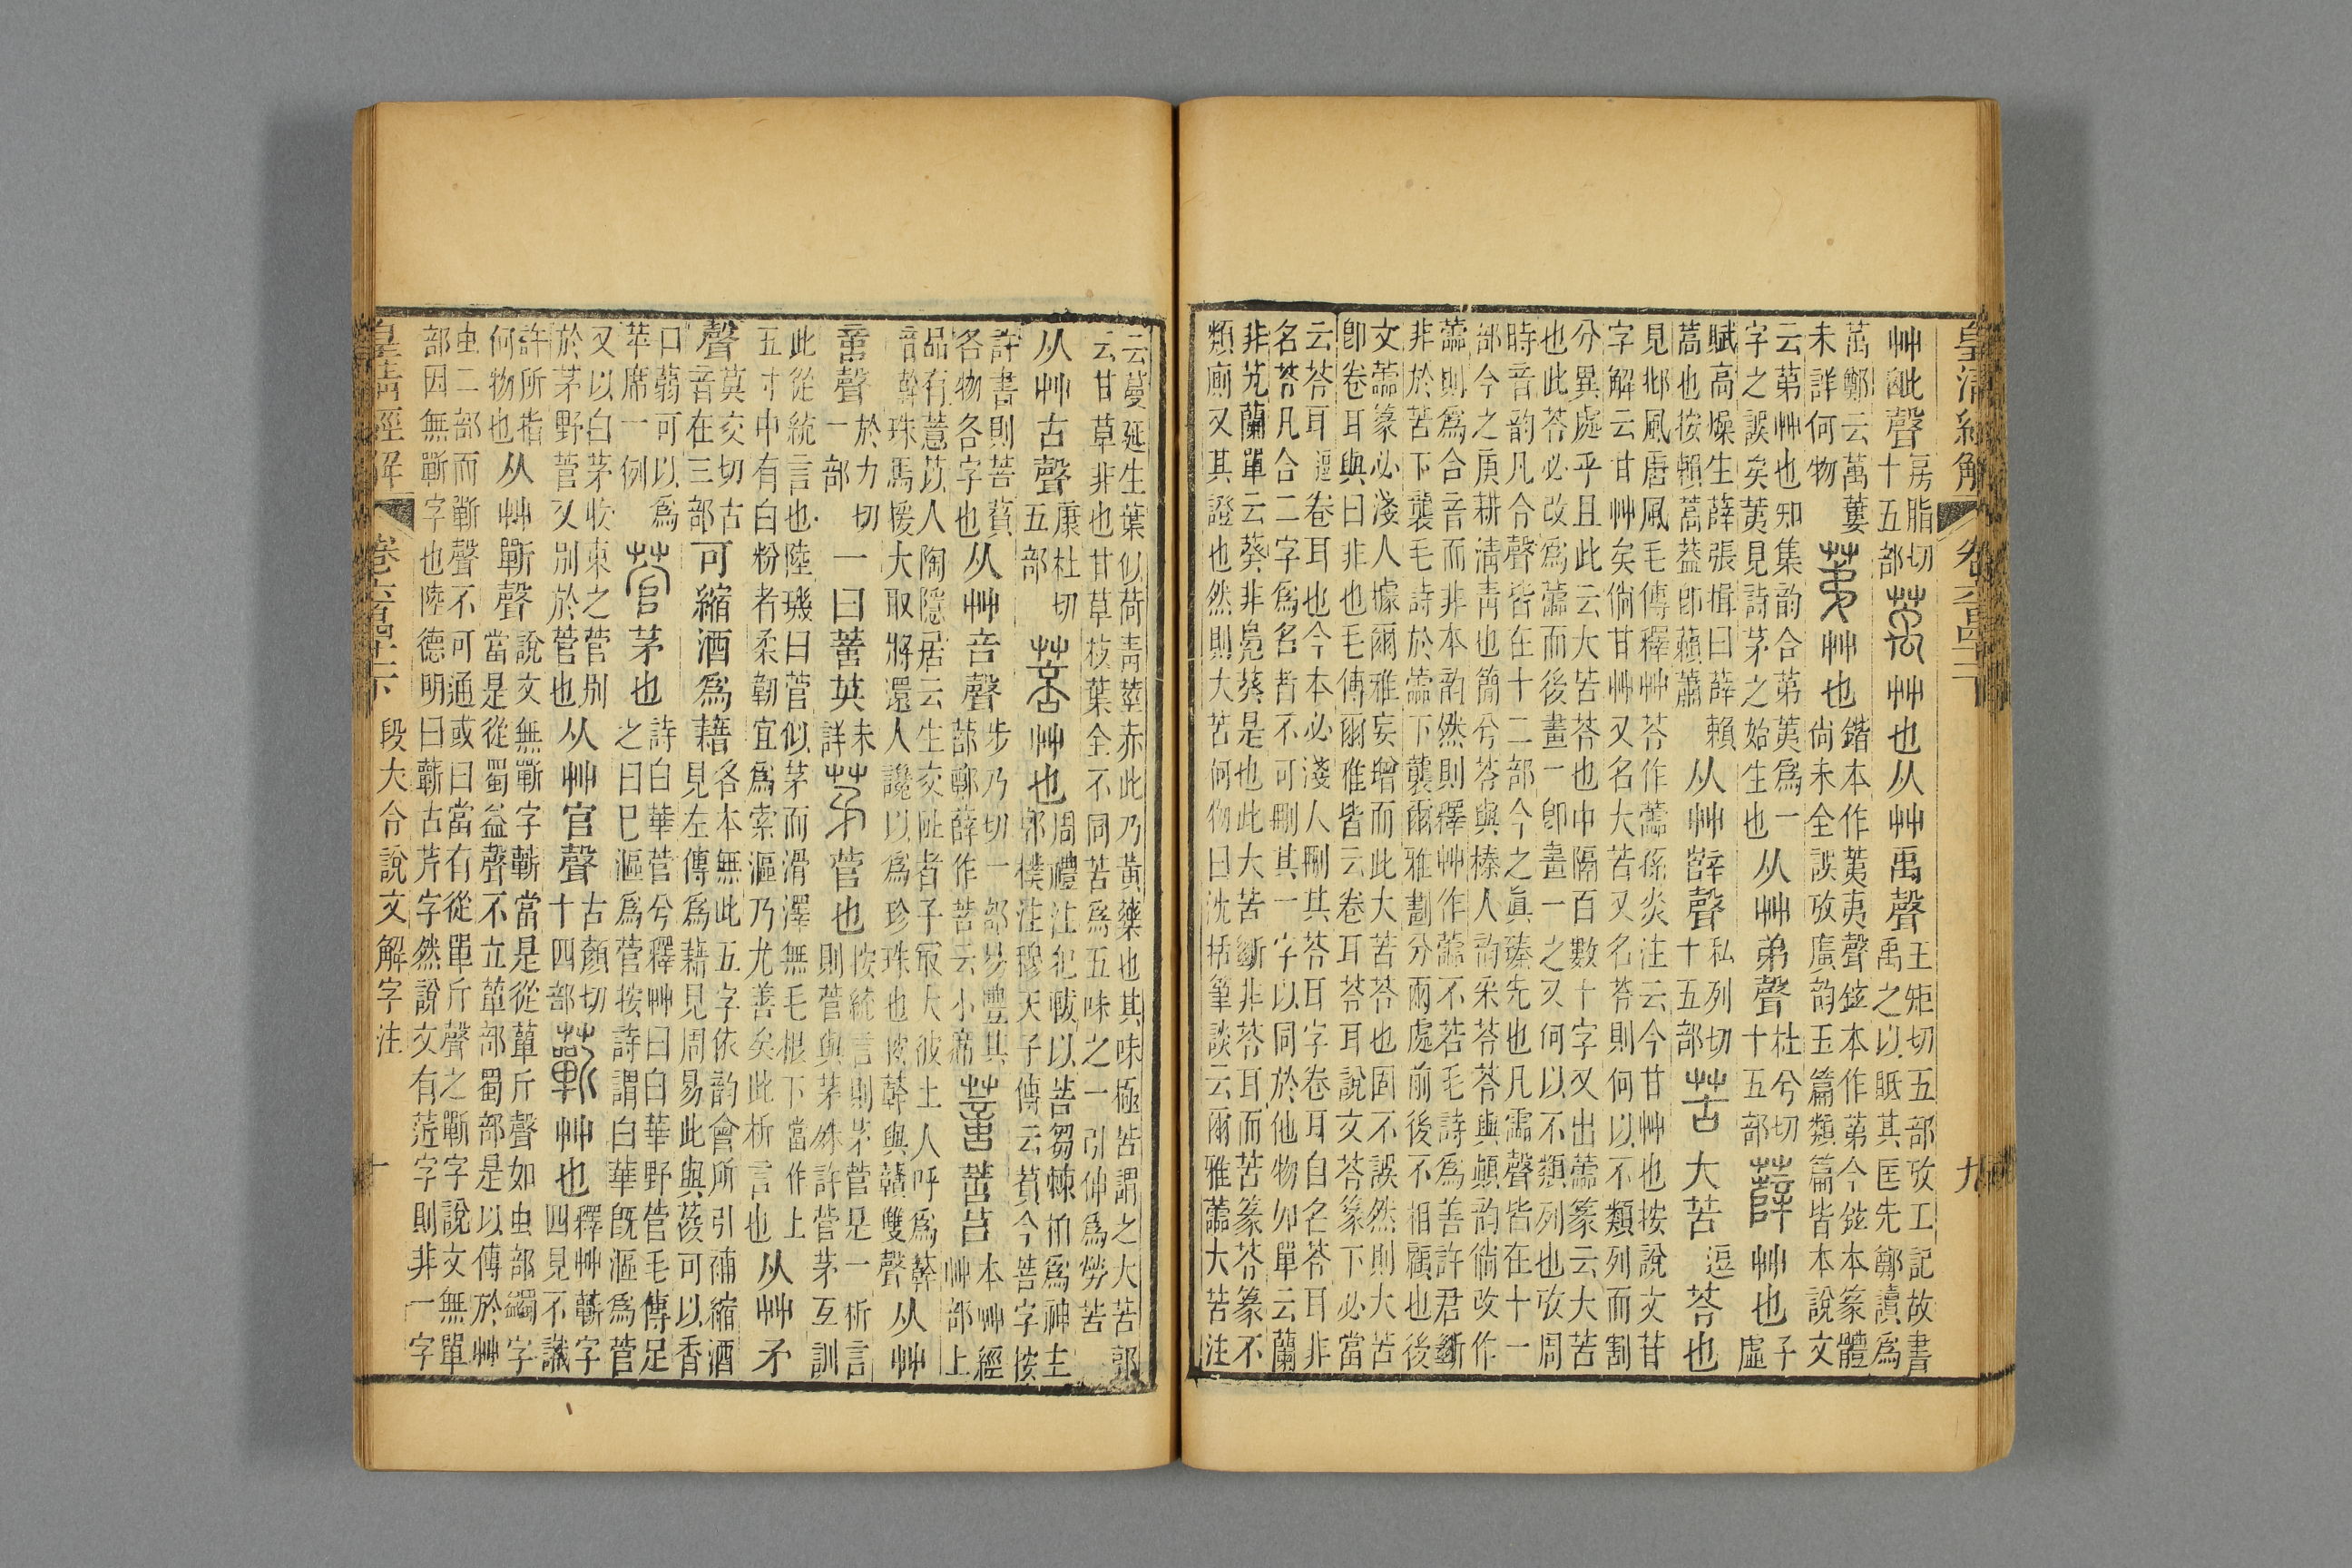 皇清經解 卷六百四十一下 九
艸𣬉聲房脂切十五部萭艸也从艸禹聲王矩切五部攷工記故書禹之以眡其匡先鄭讀爲
萬鄭云萬蔞未詳何物荑艸也鍇本作荑夷聲鉉本作苐今鉉本篆體尚未全誤攷廣韵玉篇類篇皆本說文
云苐艸也知集韵合苐荑爲一字之誤矣荑見詩茅之始生也从艸弟聲杜兮切十五部薛艸也子虛
賦高燥生薛張揖曰薛賴蒿也按賴蒿葢卽藾蕭从艸辥聲私列切十五部苦大苦逗苓也
見邶風唐風毛傳釋艸苓作蘦孫炎注云今甘艸也按說文甘
字解云甘艸矣倘甘艸又名大苦又名苓則何以不類列而割
分異處乎且此云大苦苓也中隔百數十字又出蘦篆云大苦
也此苓必改爲蘦而後畫一卽畫一之又何以不類列也攷周
時音韵凡令聲皆在十二部今之眞臻先也凡霝聲皆在十一
部今之庚耕清青也簡兮苓與榛人韵采苓苓與顚韵倘改作
蘦則爲合音而非本韵然則釋艸作蘦不若毛詩爲善許君斷
非於苦下襲毛詩於蘦下襲爾雅劃分兩處前後不相顧也後
文蘦篆必淺人據爾雅妄增而此大苦苓也固不誤然則大苦
卽卷耳與曰非也毛傳爾雅皆云卷耳苓耳說文苓篆下必當
云苓耳逗卷耳也今本必淺人刪其苓耳字卷耳自名苓耳非
名苓凡合二字爲名者不可刪其一字以同於他物如單云蘭
非芄蘭單云葵非鳧葵是也此大苦斷非苓耳而苦篆苓篆不
類廁又其證也然則大苦何物曰沈括筆談云爾雅蘦大苦注
云蔓延生葉似荷青莖赤此乃黃藥也其味極苦謂之大苦郭
云甘草非也甘草枝葉全不同苦爲五味之一引伸爲勞苦
从艸古聲康杜切五部菩艸也周禮注犯軷以菩芻棘柏爲神主郭樸注穆天子傳云萯今菩字按
許書則菩萯各物各字也从艸咅聲步乃切一部易豐其蔀鄭薛作菩云小席䔽䔽苢本艸經艸部上
品有薏苡人陶隱居云生交阯者子最大彼土人呼爲簳
音簳珠馬援大取將還人讒以爲珍珠也按簳與贛雙聲从艸
𠶷聲於力切一部一曰䔽英未詳茅菅也按統言則茅菅是一析言則菅與茅殊許菅茅互訓
此從統言也陸璣曰菅似茅而滑澤無毛根下當作上
五寸中有白粉者柔韌宜爲索漚乃尤善矣此析言也从艸矛
聲莫交切古音在三部可縮酒爲藉各本無此五字依韵會所引補縮酒見左傳爲藉見周易此與葰可以香
口蒻可以爲苹席一例菅茅也詩白華菅兮釋艸曰白華野菅毛傳足之曰已漚爲菅按詩謂白華旣漚爲菅
又以白茅收束之菅別於茅野菅又別於菅也从艸官聲古顏切十四部蘄艸也釋艸蘄字四見不識
許所指何物也从艸𣂷聲說文無𣂷字蘄當是從蘄斤聲如虫部蠲字當是從蜀益聲不立部蜀部是以傳於艸
虫二部而蘄聲不可通或曰當有從單斤聲之𣂷字說文無單
部因無𣂷字也陸德明曰蘄古芹字然說文有䒽字則非一字
皇清經解 卷六百四十一下 段大令說文解字注 十